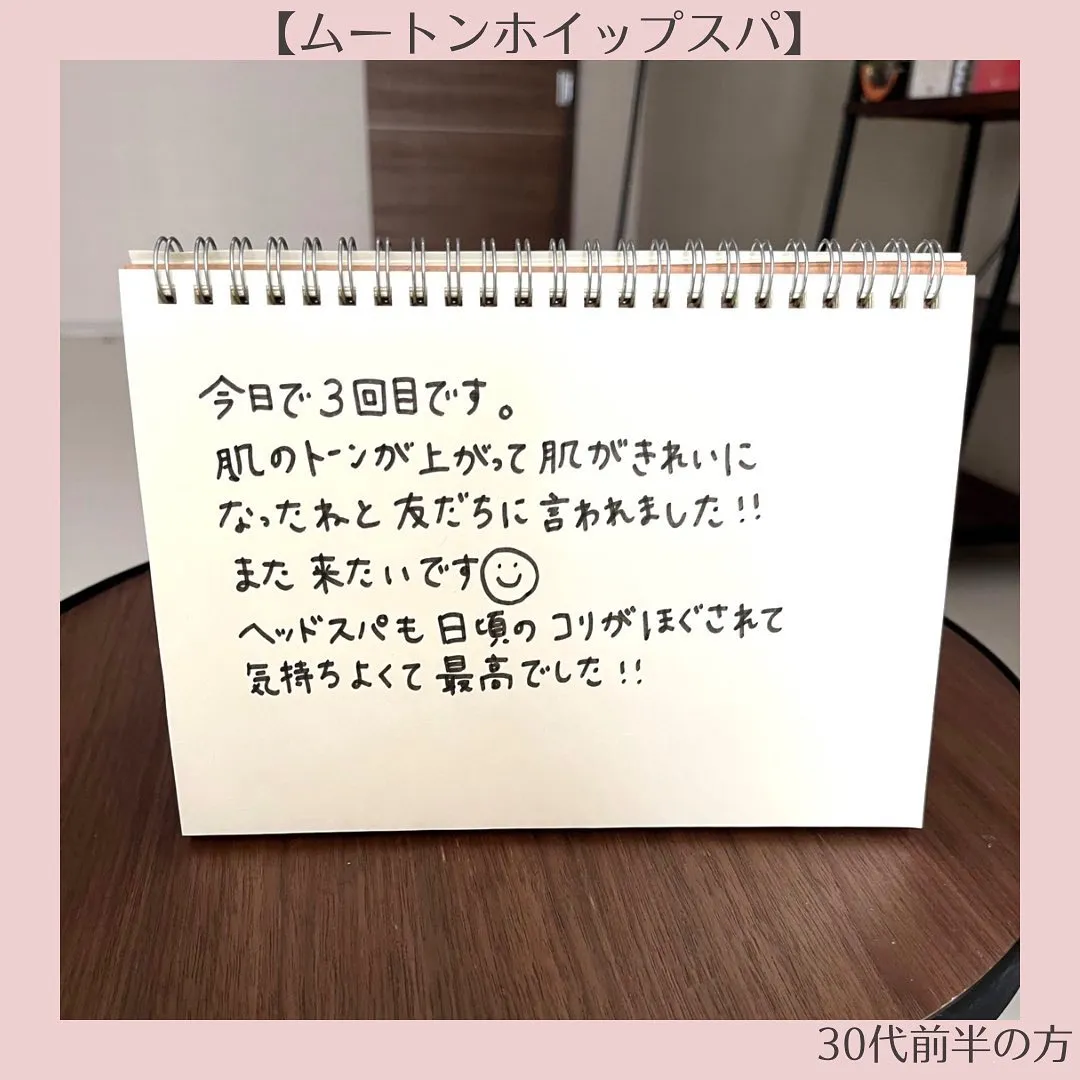 【ムートンホイップスパ】
今日で3回目です。
肌のトーンが上がって肌がきれいに
なったねと友だちに言われました!!
また来たいです☺
ヘッドスパも日頃のコリがほぐされて
気持ちよくて最高でした!!
30代前半の方